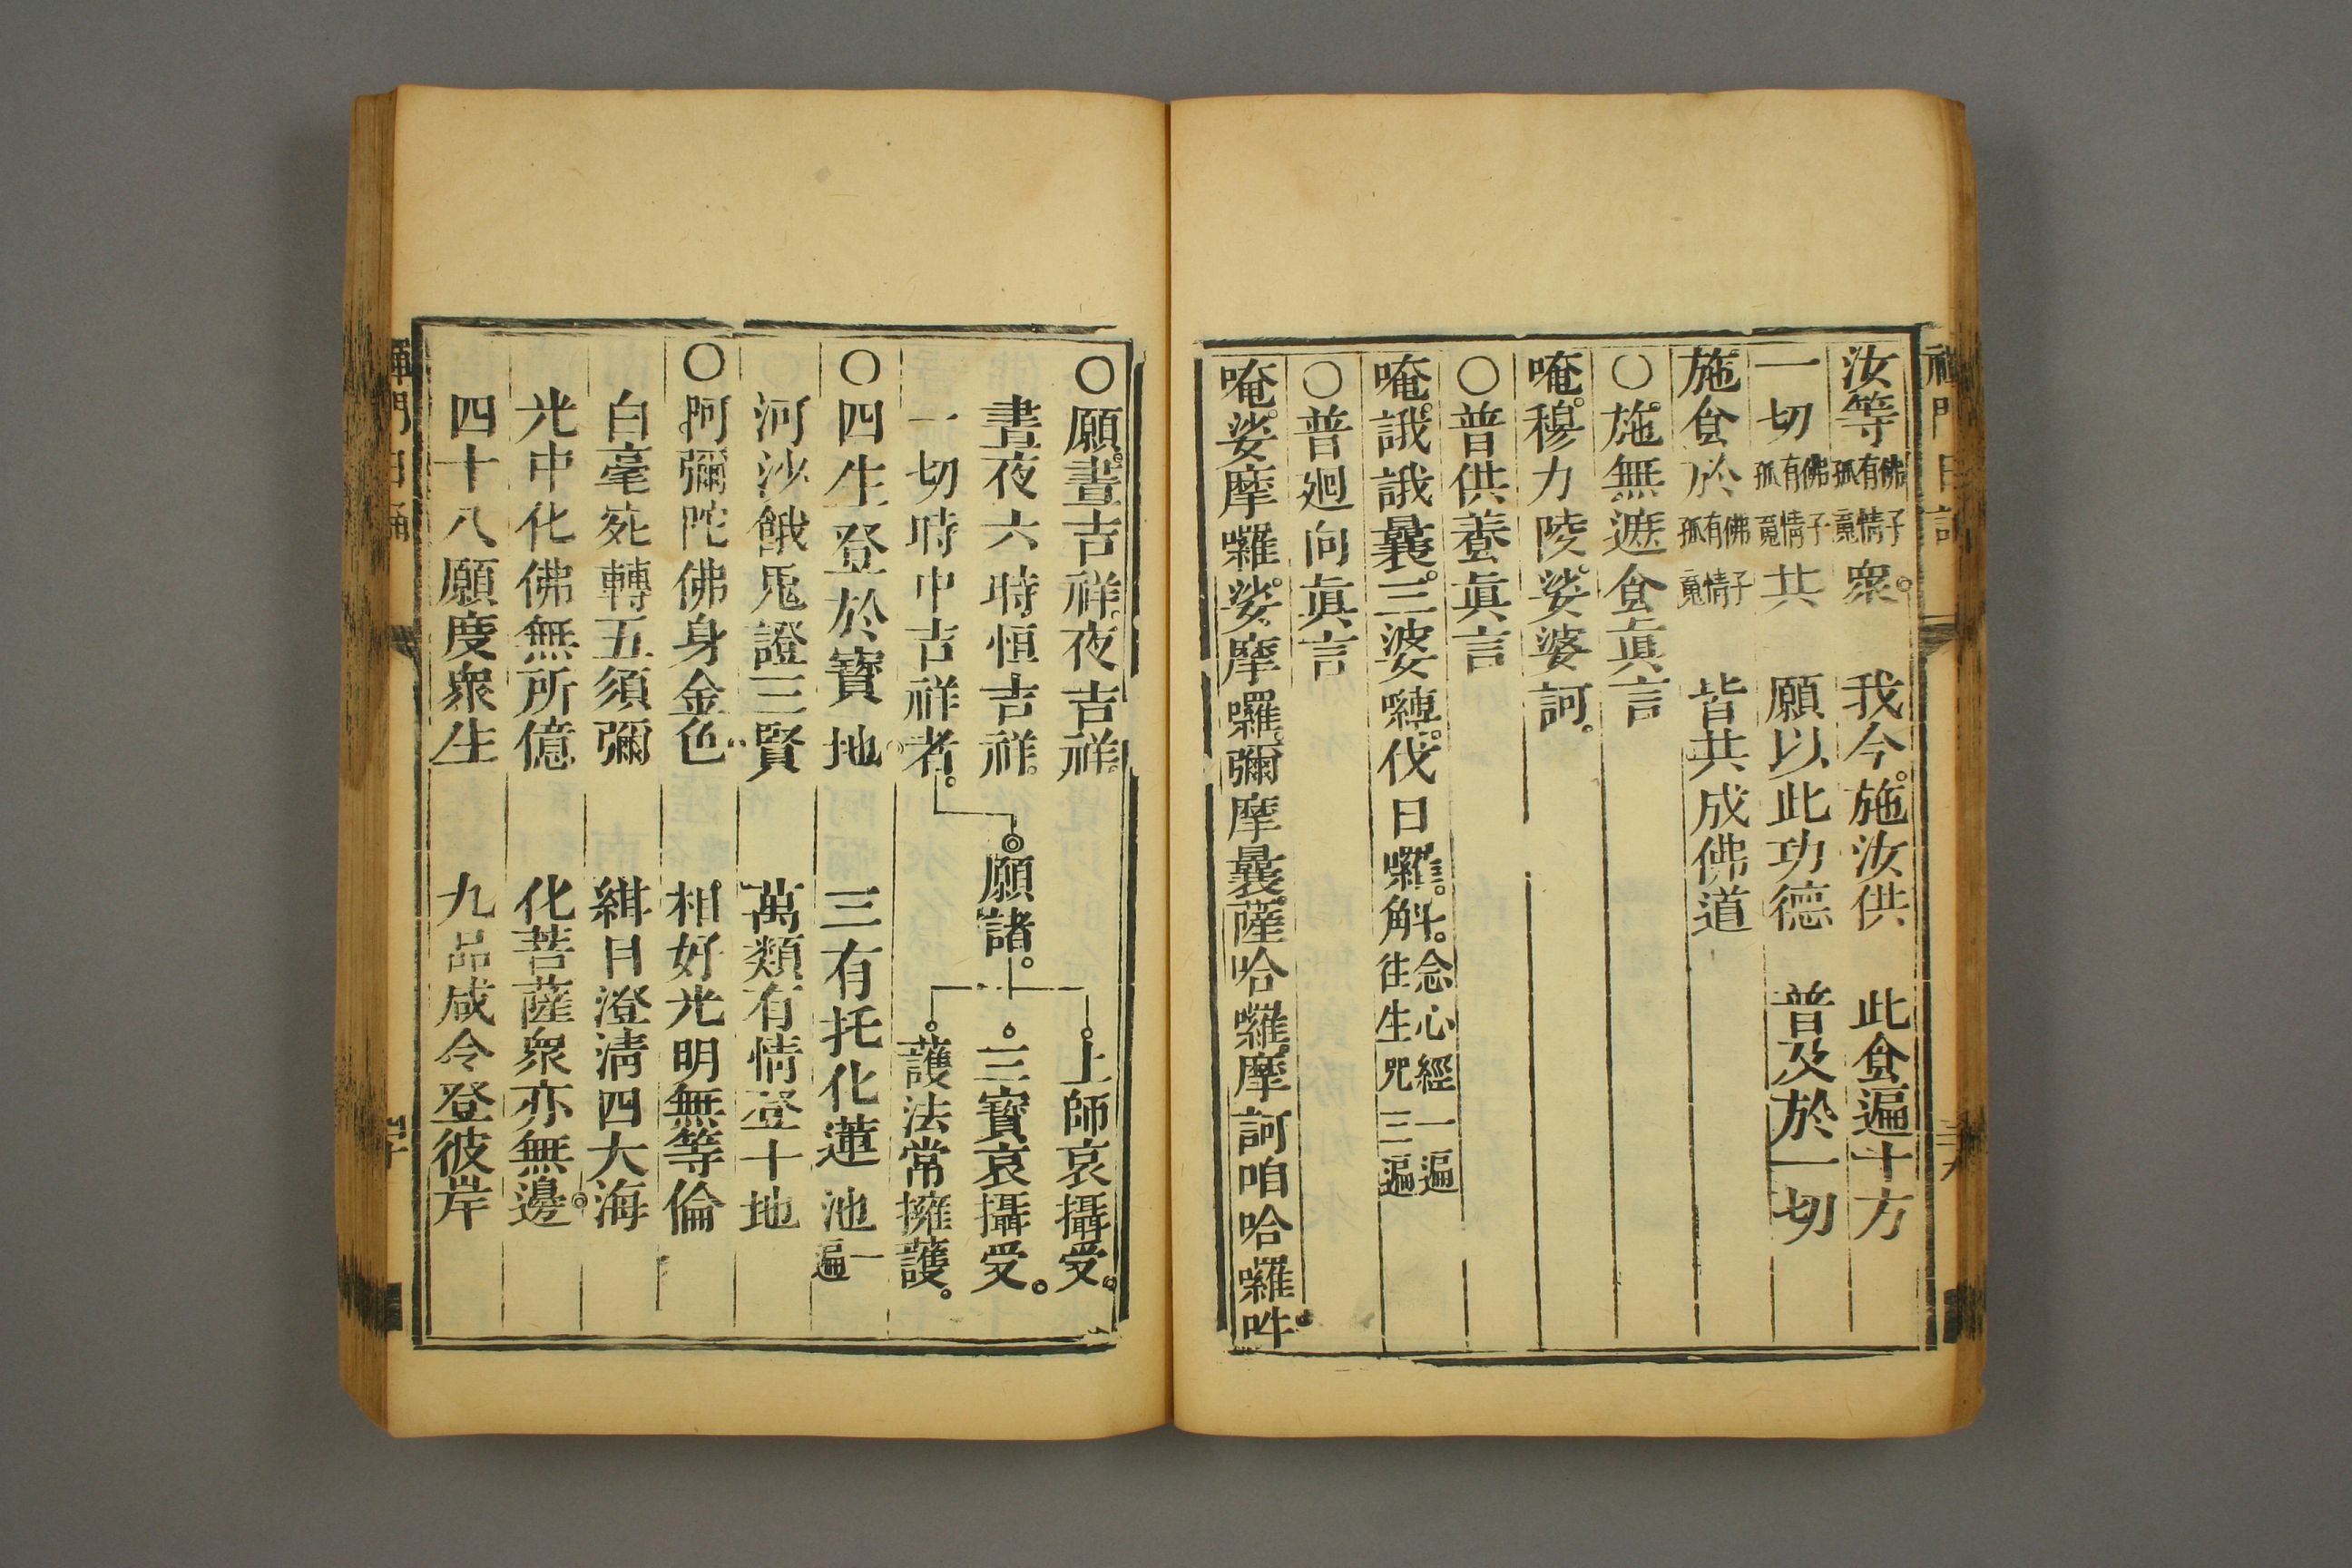 汝等佛子有情孤䰟衆。我今施汝供 此食遍十方
一切佛子有情孤䰟共 願以此功德 普及於一切
施食於佛子有情孤䰟 皆共成佛道
○施無遮食眞言
唵。穆力陵。娑婆訶。
○普供養眞言
唵。誐誐曩。三婆嚩。伐日囉。斛。念心經一遍往生咒三遍
○普廻向眞言
唵。娑摩囉。娑摩囉。彌摩曩。薩哈囉。摩訶咱哈囉吽。
○願。晝吉祥。夜吉祥。
晝夜六時恒吉祥。
一切時中吉祥者。
願諸。
上師哀攝受。
三寶哀攝受。
護法常擁護。
○四生登於寶地 三有托化蓮池一遍
河沙餓鬼證三賢 萬類有情登十地
○阿彌陀佛身金色 相好光明無等倫
白毫宛轉五須彌 紺目澄清四大海
光中化佛無所億 化菩薩衆亦無邊
四十八願度衆生 九品咸令登彼岸